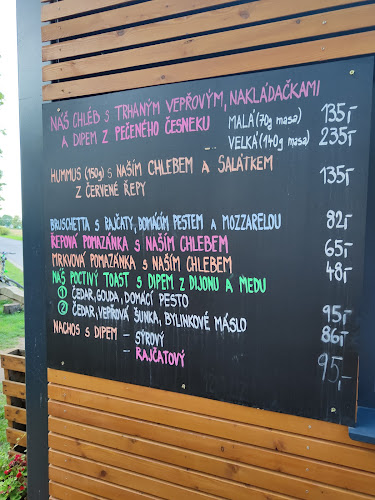 NÁŠ CHLÉB S TRHANÝM VEPŘOVÝM, NAKLÁDAČKAMI
A DIPEM Z PEČENÉHO ČESNEKU MALÁ (70g masa) 135,-
VELKÁ (140g masa) 235,-
HUMMUS (150g) S NAŠÍM CHLEBEM A SALÁTKEM 135,-
Z ČERVENÉ ŘEPY
BRUSCHETTA S RAJČATY, DOMÁCÍM PESTEM A MOZZARELOU 82,-
ŘEPOVÁ POMAZÁNKA S NAŠÍM CHLEBEM 65,-
MRKVOVÁ POMAZÁNKA S NAŠÍM CHLEBEM 48,-
NÁŠ POCTIVÝ TOAST S DIPEM Z DIJONU A MEDU
1 ČEDAR, GOUDA, DOMÁCÍ PESTO 95,-
2 ČEDAR, VEPŘOVÁ ŠUNKA, BYLINKOVÉ MÁSLO 86,-
NACHOS S DIPEM - SÝROVÝ
- RAJČATOVÝ 95,-